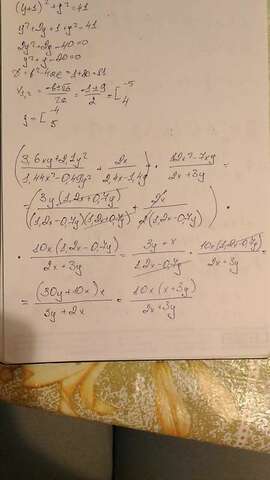 (y+1)² + y² = 41
y² + 2y + 1 + y² = 41
2y² + 2y - 40 = 0
y² + y - 20 = 0
D = b² - 4ac = 1 + 80 = 81
= (-b±√D)/2a = (-1±9)/2 = [ -5 4
y = [ -4 5
((3,6xy + 2,1y²)/(1,44x² - 0,49y²) + 2x/(2,4x - 1,4y)) · (12x² - 7xy)/(2x + 3y) =
= (3y(1,2x + 0,7y)/((1,2x - 0,7y)(1,2x + 0,7y)) + 2x/(2(1,2x - 0,7y))) ·
· 10x(1,2x - 0,7y)/(2x + 3y) = (3y + x)/(1,2x - 0,7y) · 10x(1,2x - 0,7y)/(2x + 3y) =
= (30y + 10x)x/(3y + 2x) = 10x(x + 3y)/(2x + 3y)